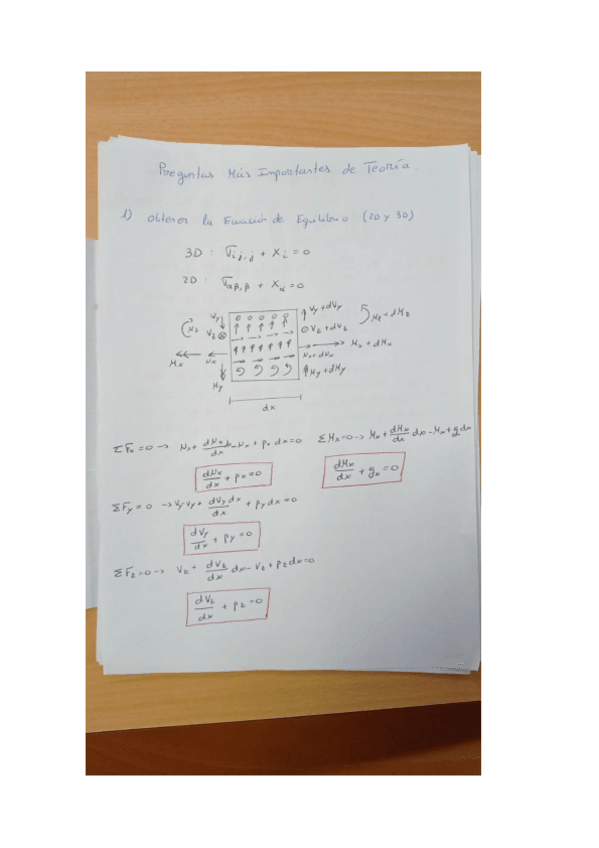 Preguntas Más Importantes de Teoría.
1) Obtener la Ecuación de Equilibrio (2D y 3D)
3D : σij,j + Xi = 0
2D : σαβ,β + Xα = 0
Vy Vy+dVy
Mz Vz Vz+dVz Mz+dMz
Mx Nx Nx+dNx Mx+dMx
My My+dMy
dx
ΣFx=0 -> Nx+ dNx/dx dx-Nx + px dx=0 ΣMx=0-> Mx+ dMx/dx dx-Mx+gx dx
dNx/dx + px=0 dMx/dx + gx=0
ΣFy=0 -> Vy-Vy+ dVy/dx dx + py dx=0
dVy/dx + py=0
ΣFz=0-> Vz+ dVz/dx dx-Vz+pz dx=0
dVz/dx + pz=0